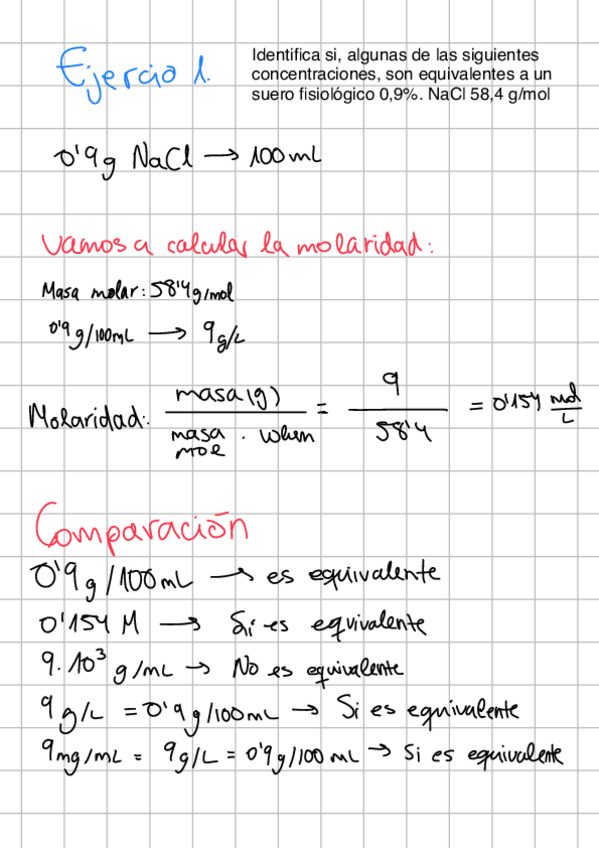 Ejercio 1.
Identifica si, algunas de las siguientes
concentraciones, son equivalentes a un
suero fisiológico 0,9%. NaCl 58,4 g/mol
0'9g NaCl → 100mL
Vamos a calcular la molaridad:
Masa molar: 58'4g/mol
0'9 g/100mL → 9g/L
Molaridad: masa(g) / masa mol . volumen = 9 / 58'4 = 0'154 mol/L
Comparación
0'9g/100mL → es equivalente
0'154 M → Si es equivalente
9.10³ g/mL → No es equivalente
9 g/L = 0'9g/100mL → Si es equivalente
9mg/mL = 9g/L = 0'9g/100 mL → Si es equivalente